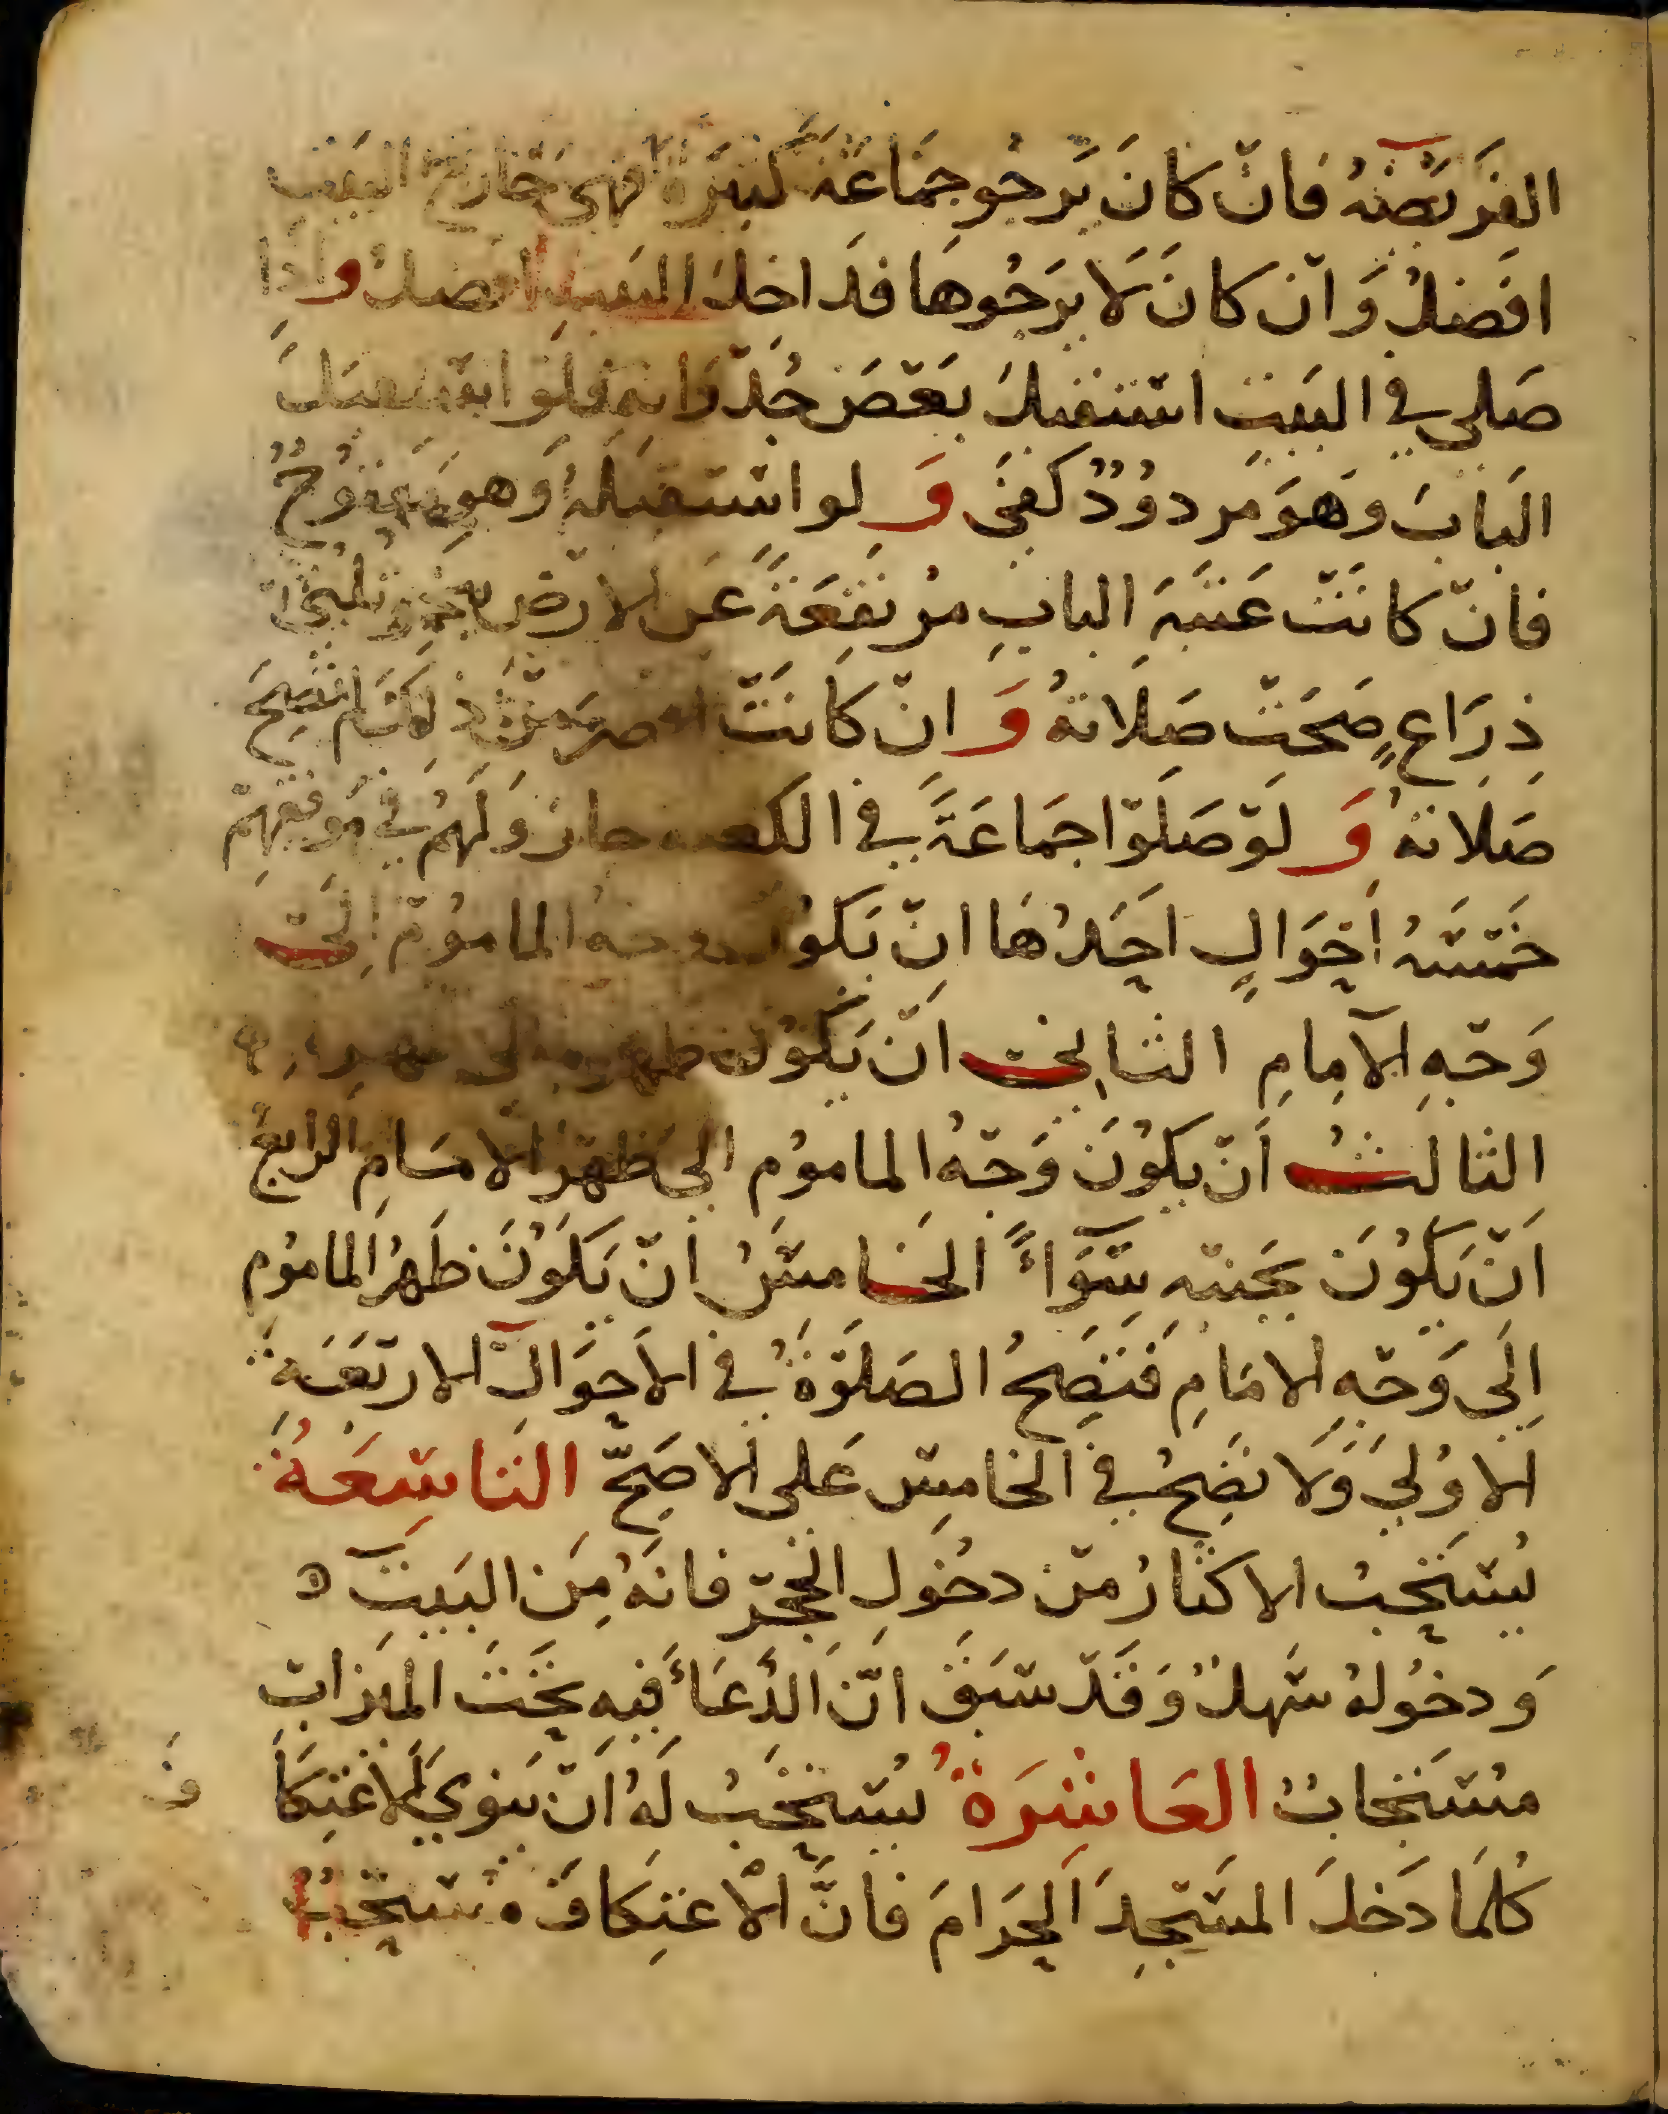 الفريضة فان كان يرجو جماعة كثيرة فهي خارج البيت
افضل وان كان لا يرجوها فداخل البيت افضل واذا
صلى في البيت استقبل بعض جدرانه فلو استقبل
الباب وهو مردود كفى ولو استقبله وهو مفتوح
فان كانت عتبة الباب مرتفعة عن الارض نحو ثلثي
ذراع صحت صلاته وان كانت اقصر من ذلك لم تصح
صلاته ولو صلوا جماعة في الكعبة جاز ولهم في موقفهم
خمسة احوال احدها ان يكون وجه الماموم الى
وجه الامام الثاني ان يكون ظهره الى ظهره
الثالث ان يكون وجه الماموم الى ظهر الامام الرابع
ان يكون بجنبه سواء الخامس ان يكون ظهر الماموم
الى وجه الامام فتصح الصلوة في الاحوال الاربعة
الاولى ولا تصح في الخامس على الاصح التاسعة
يستحب الاكثار من دخول الحجر فانه من البيت ه
ودخوله سهل وقد سبق ان الدعاء فيه تحت الميزاب
مستجاب العاشرة يستحب له ان ينوي الاعتكا ف
كلما دخل المسجد الحرام فان الاعتكاف مستحب